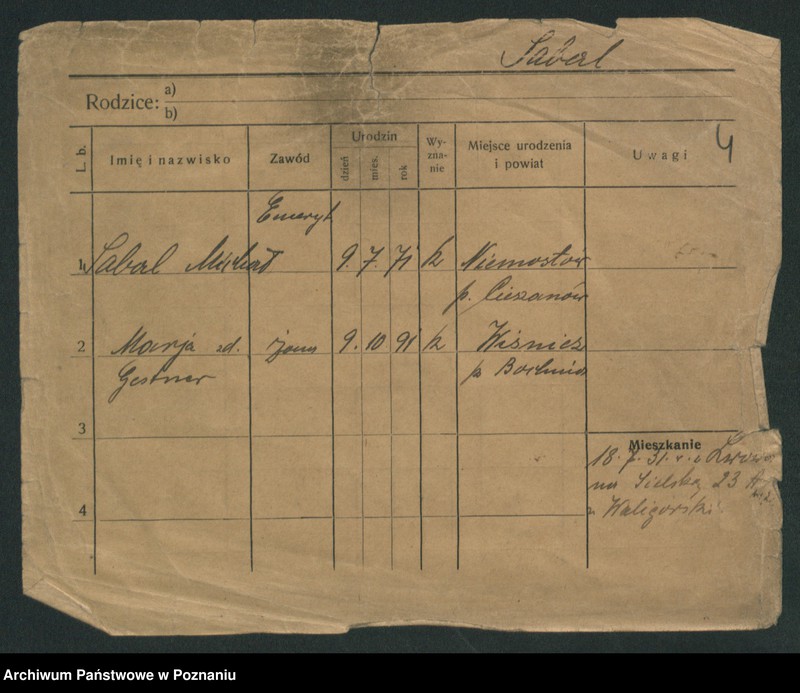 Saberl
Rodzice: a)
b)
L. b.
Imię i nazwisko
Zawód
Urodzin
dzień
mies.
rok
Wy-
zna-
nie
Miejsce urodzenia
i powiat
Uwagi
4
Emeryt
1 Saberl Michał 9. 7. 71 k Niemostów
p. Cieszanów
2 Marja zd. żona 9. 10 91 k Wiśnicz
Gestner p. Bochnia
3
Mieszkanie
18. 7. 31. r. z Lwowa
na Sielską 23
u Waligórski
4
Archiwum Państwowe w Poznaniu